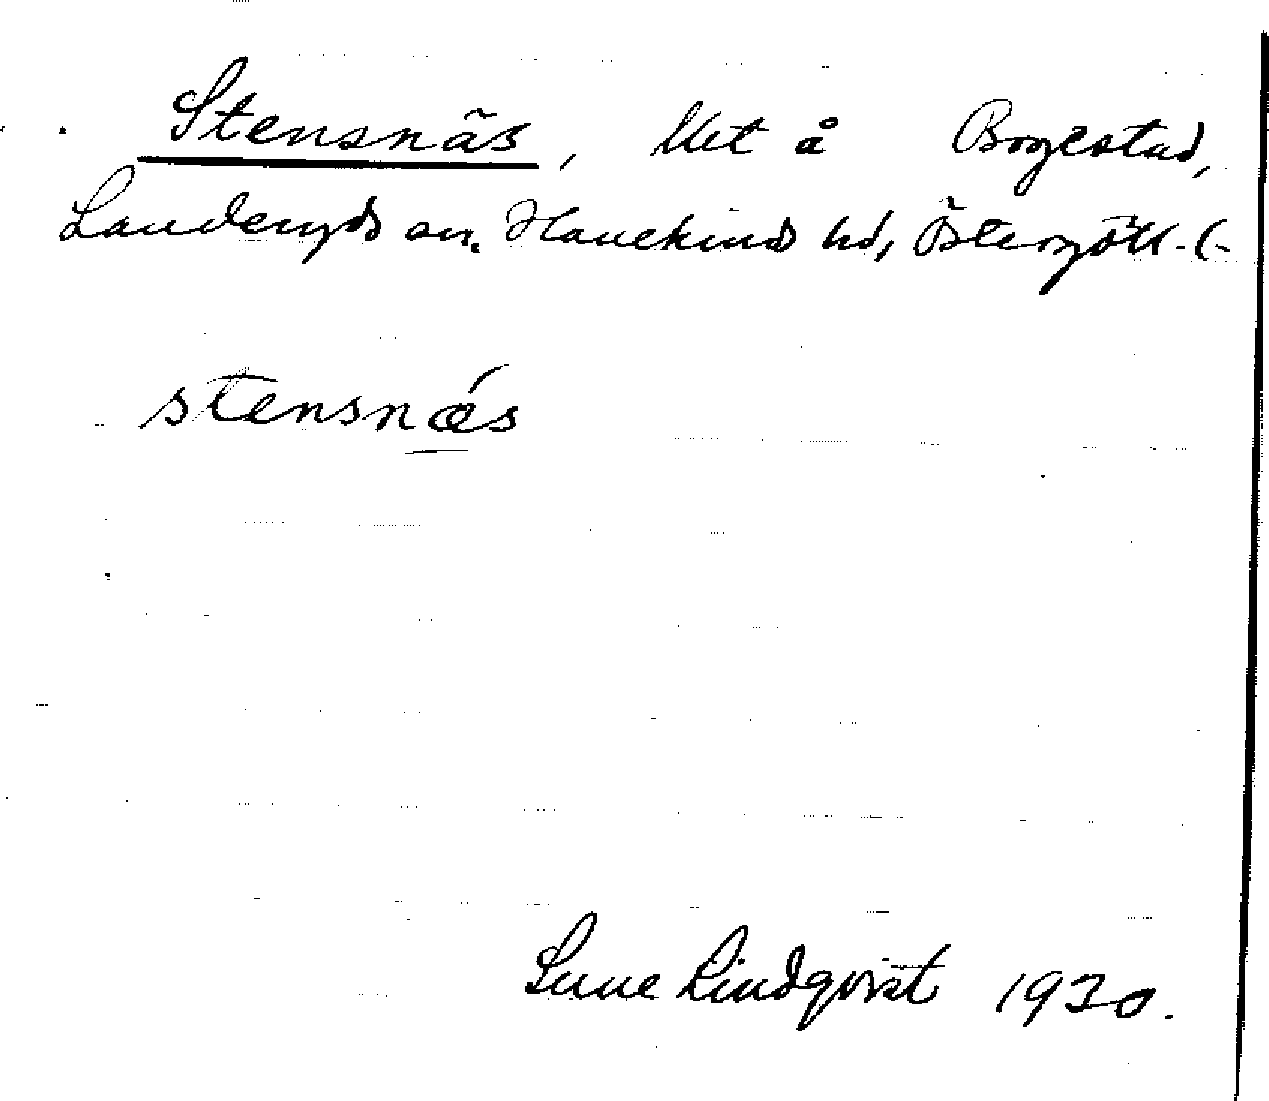 Stensnäs, lht å Bogestad,
Landeryds sn. Hanekinds hd, Östergötl. l.
stensnǽs
Sune Lindqvist 1930.